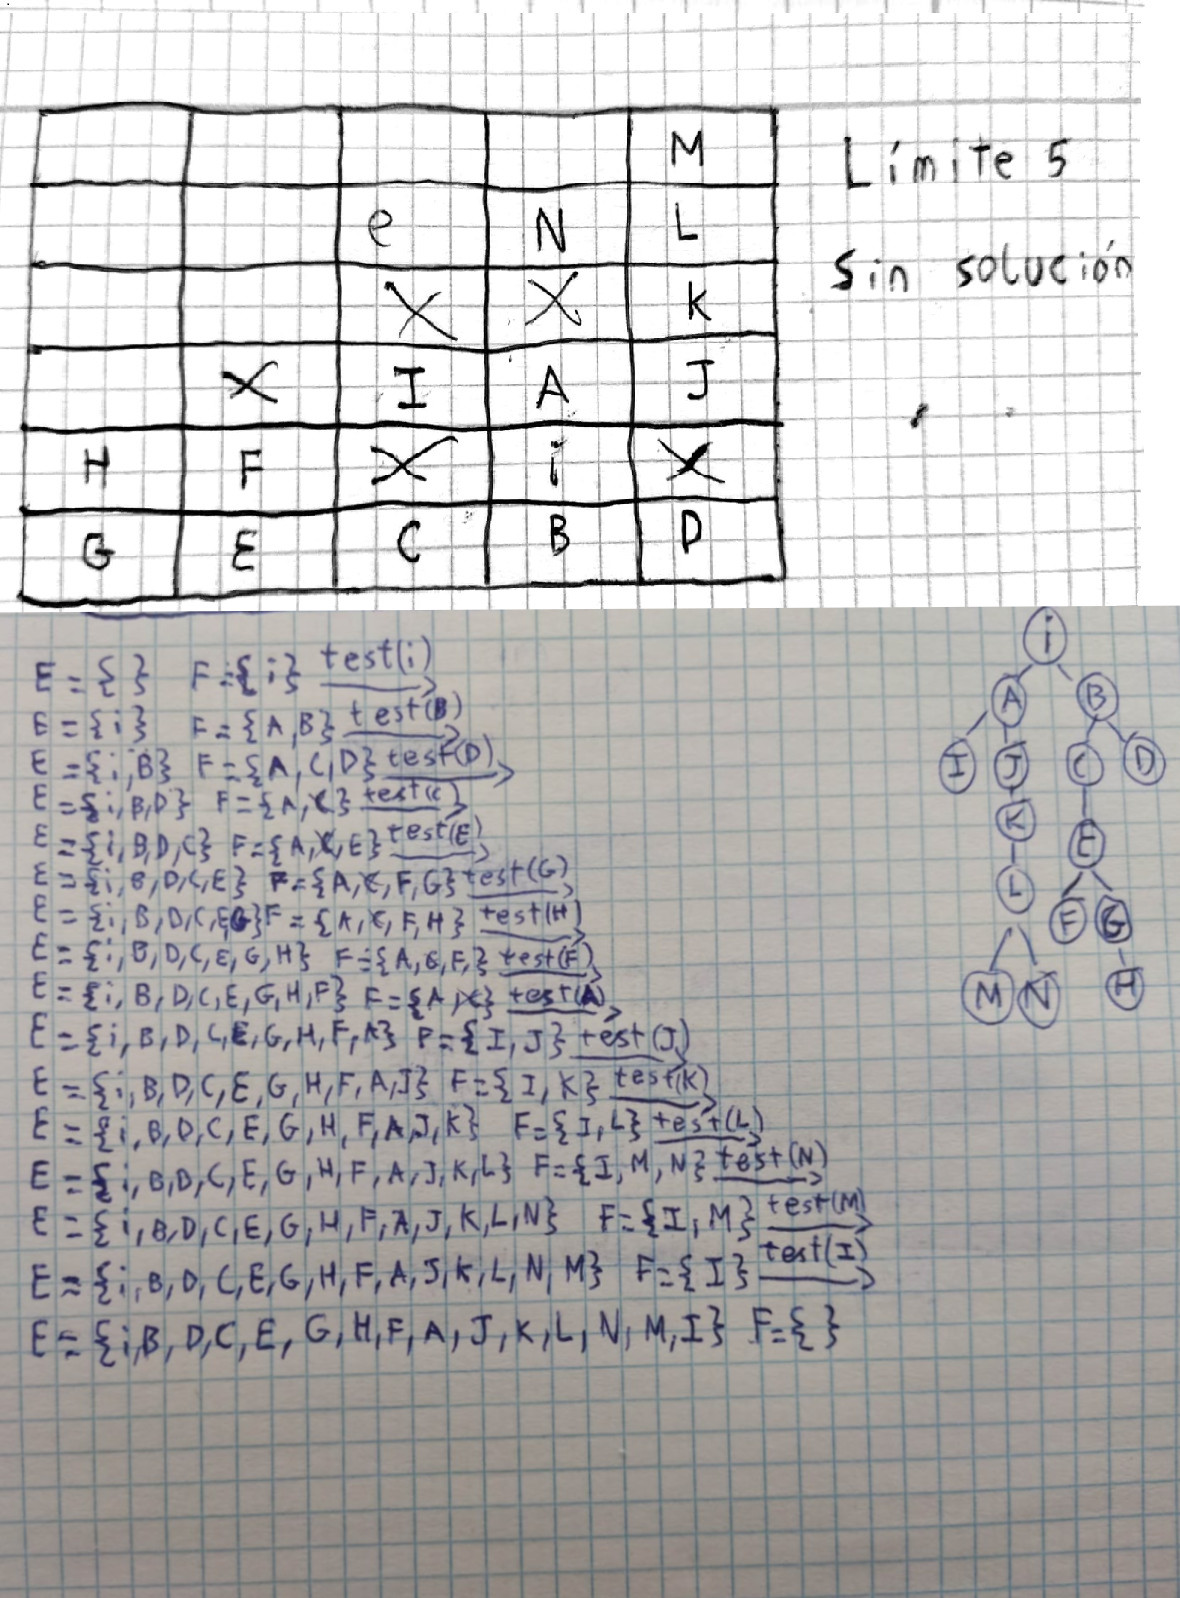 M
Límite 5
e N L
Sin solución
X X K
X I A J
H F X i X
G E C B D
E={ } F={i} test(i)
E={i} F={A,B} test(B)
E={i,B} F={A,C,D} test(D)
E={i,B,D} F={A,C} test(C)
E={i,B,D,C} F={A,C,E} test(E)
E={i,B,D,C,E} F={A,C,F,G} test(G)
E={i,B,D,C,E,G} F={A,C,F,H} test(H)
E={i,B,D,C,E,G,H} F={A,C,F,} test(F)
E={i,B,D,C,E,G,H,F} F={A,C} test(A)
E={i,B,D,C,E,G,H,F,A} F={I,J} test(J)
E={i,B,D,C,E,G,H,F,A,J} F={I,K} test(K)
E={i,B,D,C,E,G,H,F,A,J,K} F={I,L} test(L)
E={i,B,D,C,E,G,H,F,A,J,K,L} F={I,M,N} test(N)
E={i,B,D,C,E,G,H,F,A,J,K,L,N} F={I,M} test(M)
E={i,B,D,C,E,G,H,F,A,J,K,L,N,M} F={I} test(I)
E={i,B,D,C,E,G,H,F,A,J,K,L,N,M,I} F={ }
i
A B
I J C D
K E
L F G
M N H